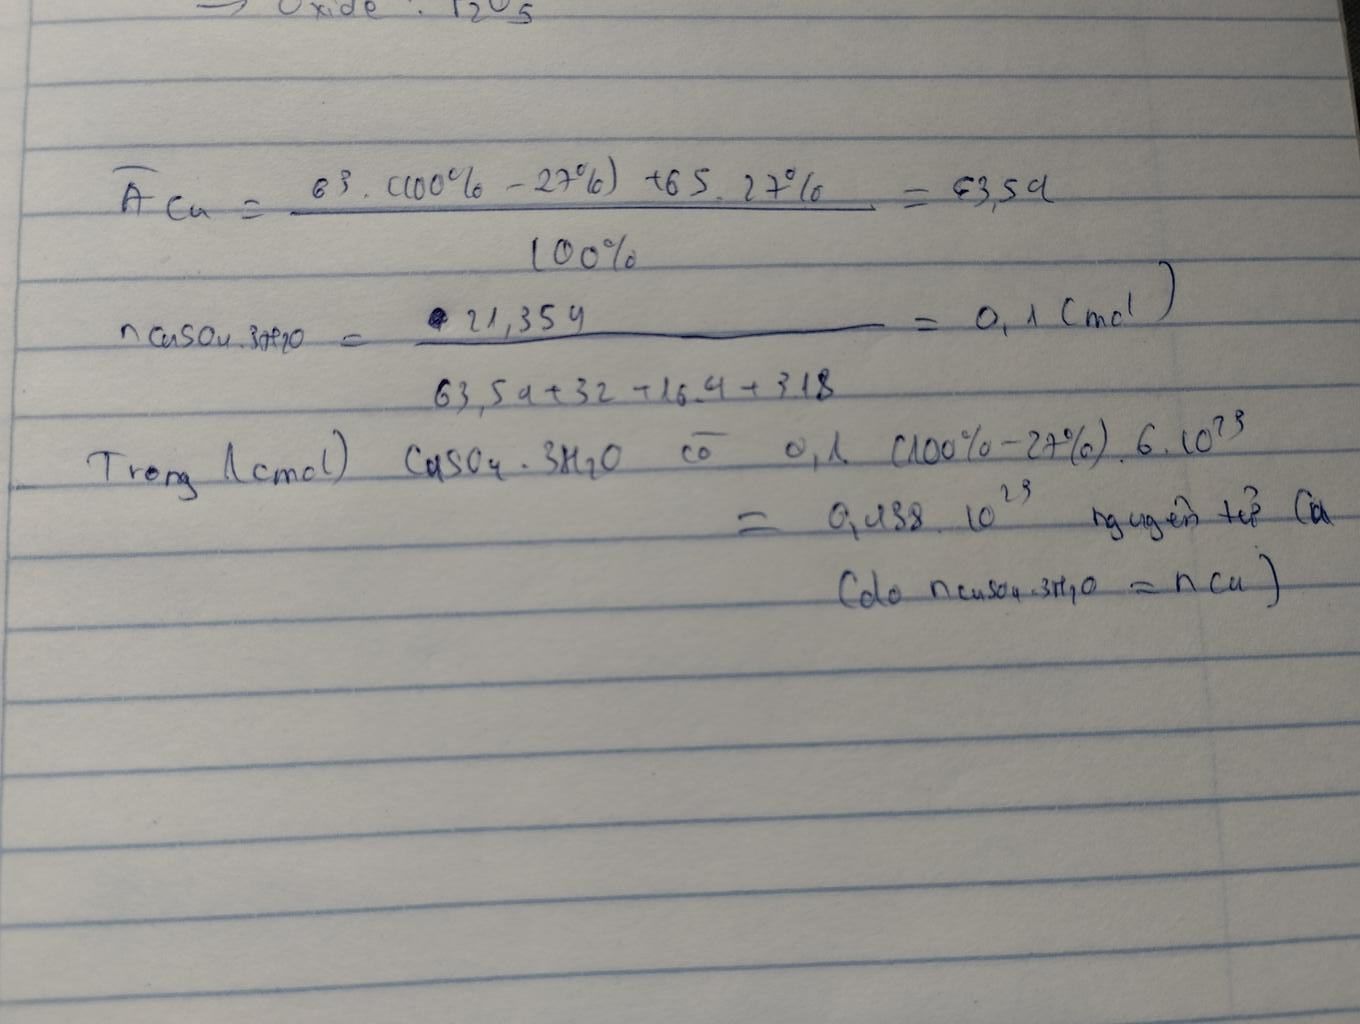 → Oxide : P₂O₅
A̅ Cu = 63 . (100% - 27%) + 65 . 27% / 100% = 63,54
n CuSO₄.3H₂O = 21,354 / 63,54 + 32 + 16.4 + 3.18 = 0,1 (mol)
Trong 1 (mol) CuSO₄ . 3H₂O có 0,1 (100% - 27%) . 6 . 10²³
= 0,438 . 10²³ nguyên tử Cu
(do n CuSO₄.3H₂O = n Cu)